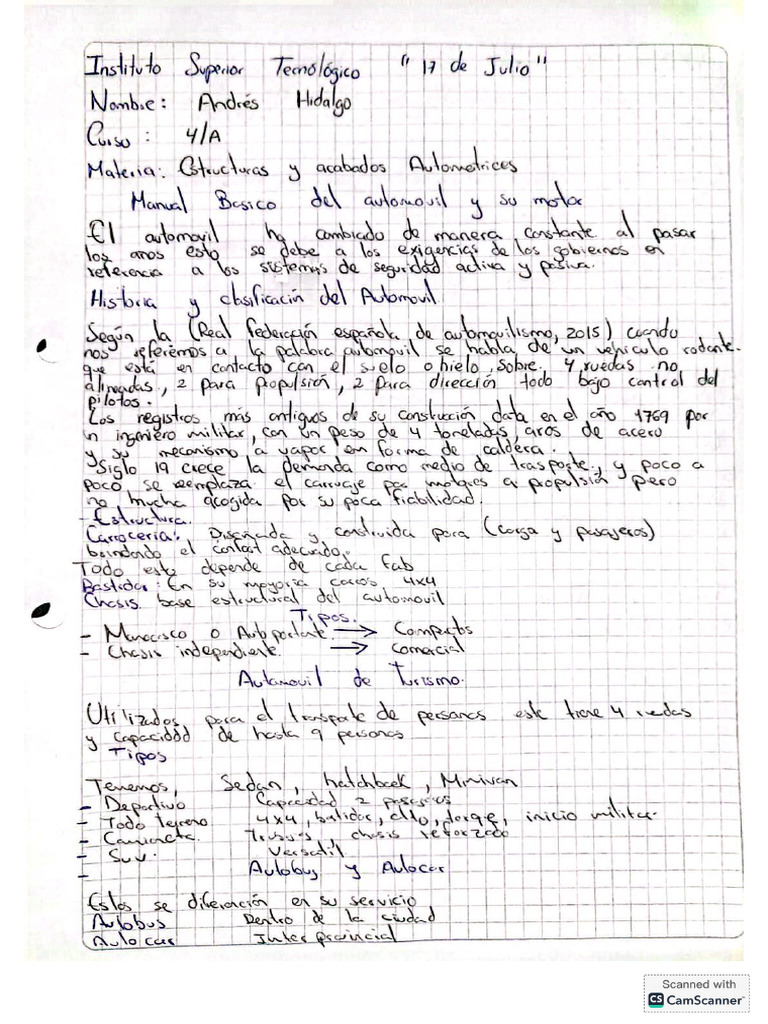 Instituto Superior Tecnológico "17 de Julio"
Nombre: Andrés Hidalgo
Curso: 4/A
Materia: Estructuras y acabados Automotrices
Manual Basico del automovil y su motor
El automovil ha cambiado de manera constante al pasar
los años esto se debe a los exigencias de los gobiernos en
referencia a los sistemas de seguridad activa y pasiva.
Historia y clasificación del Automovil.
Según la (Real federacción española de automovilismo, 2015) cuando
nos referemos a la palabra automovil se habla de un vehiculo rodante.
que está en contacto con el suelo o hielo, sobre 4 ruedas no
alineadas, 2 para propulsión, 2 para dirección todo bajo control del
pilotos.
Los registros más antiguos de su constucción data en el año 1769 por
un ingeniero militar, con un peso de 4 toneladas, aros de acero
y su mecanismo a vapor en forma de caldera.
Siglo 19 crece la demanda como medio de trasposte, y poco a
poco se reemplaza el carruaje por motores a propulsión pero
no mucha acogida por su poca fiabilidad.
- Estructura.
Carroceria: Diseñada y construida para (carga y pasajeros)
brindando el confort adecuado.
Todo esto depende de cada fab
Bastidor: En su mayoria carros, 4x4
Chasis. base estructural del automovil
Tipos.
- Monocasco o Autoportante. → Compactos
- Chasis independiente. → comercial
Automovil de Turismo.
Utilizados, para el transporte de personas este tiene 4 ruedas
y capacidad de hasta 9 personas
Tipos
Tenemos, Sedan, hatchback, Minivan
- Deportivo Capacidad 2 pasajeros
- Todo terreno 4x4, batidor, alto, torque, inicio militar.
- Camioneta. chasis reforzado
- Suv. Versatil
- Autobus y Autocar
Estos se diferención en su servicio
Autobus Dentro de la ciudad
Autocar Inter provincial
Scanned with
CS CamScanner